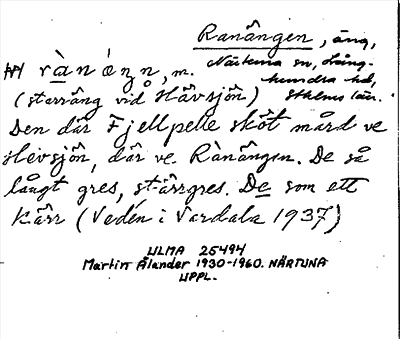 Ranängen, äng,
rànóŋŋ, m. Närtuna sn, Lång-
hundra hd,
(starräng vid Hävsjön) Sthlms län.
Den där Fjellpelle sköt mård ve
Hevsjön, där ve Rànängen. De så
långt gres, stärrgres. De som ett
kärr (Vedén i Vardala 1937)
ULMA 25494
Martin Ålander 1930-1960. NÄRTUNA
UPPL.